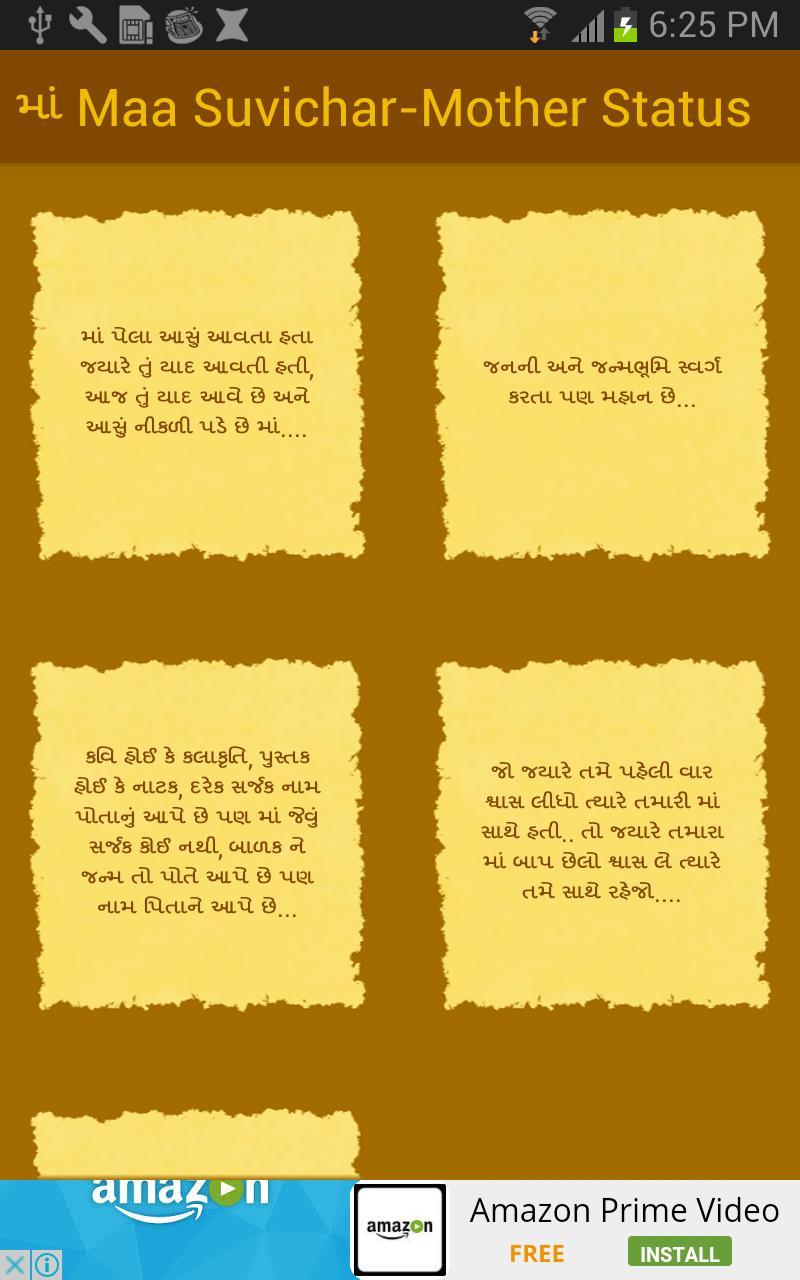 6:25 PM
માં Maa Suvichar-Mother Status
માં પેલા આસું આવતા હતા
જયારે તું યાદ આવતી હતી,
આજ તું યાદ આવે છે અને
આસું નીકળી પડે છે માં....
જનની અને જન્મભૂમિ સ્વર્ગ
કરતા પણ મહાન છે...
કવિ હોઈ કે કલાકૃતિ, પુસ્તક
હોઈ કે નાટક, દરેક સર્જક નામ
પોતાનું આપે છે પણ માં જેવું
સર્જક કોઈ નથી, બાળક ને
જન્મ તો પોતે આપે છે પણ
નામ પિતાને આપે છે...
જો જયારે તમે પહેલી વાર
શ્વાસ લીધો ત્યારે તમારી માં
સાથે હતી.. તો જયારે તમારા
માં બાપ છેલો શ્વાસ લે ત્યારે
તમે સાથે રહેજો....
amazon
amazon
Amazon Prime Video
FREE
INSTALL